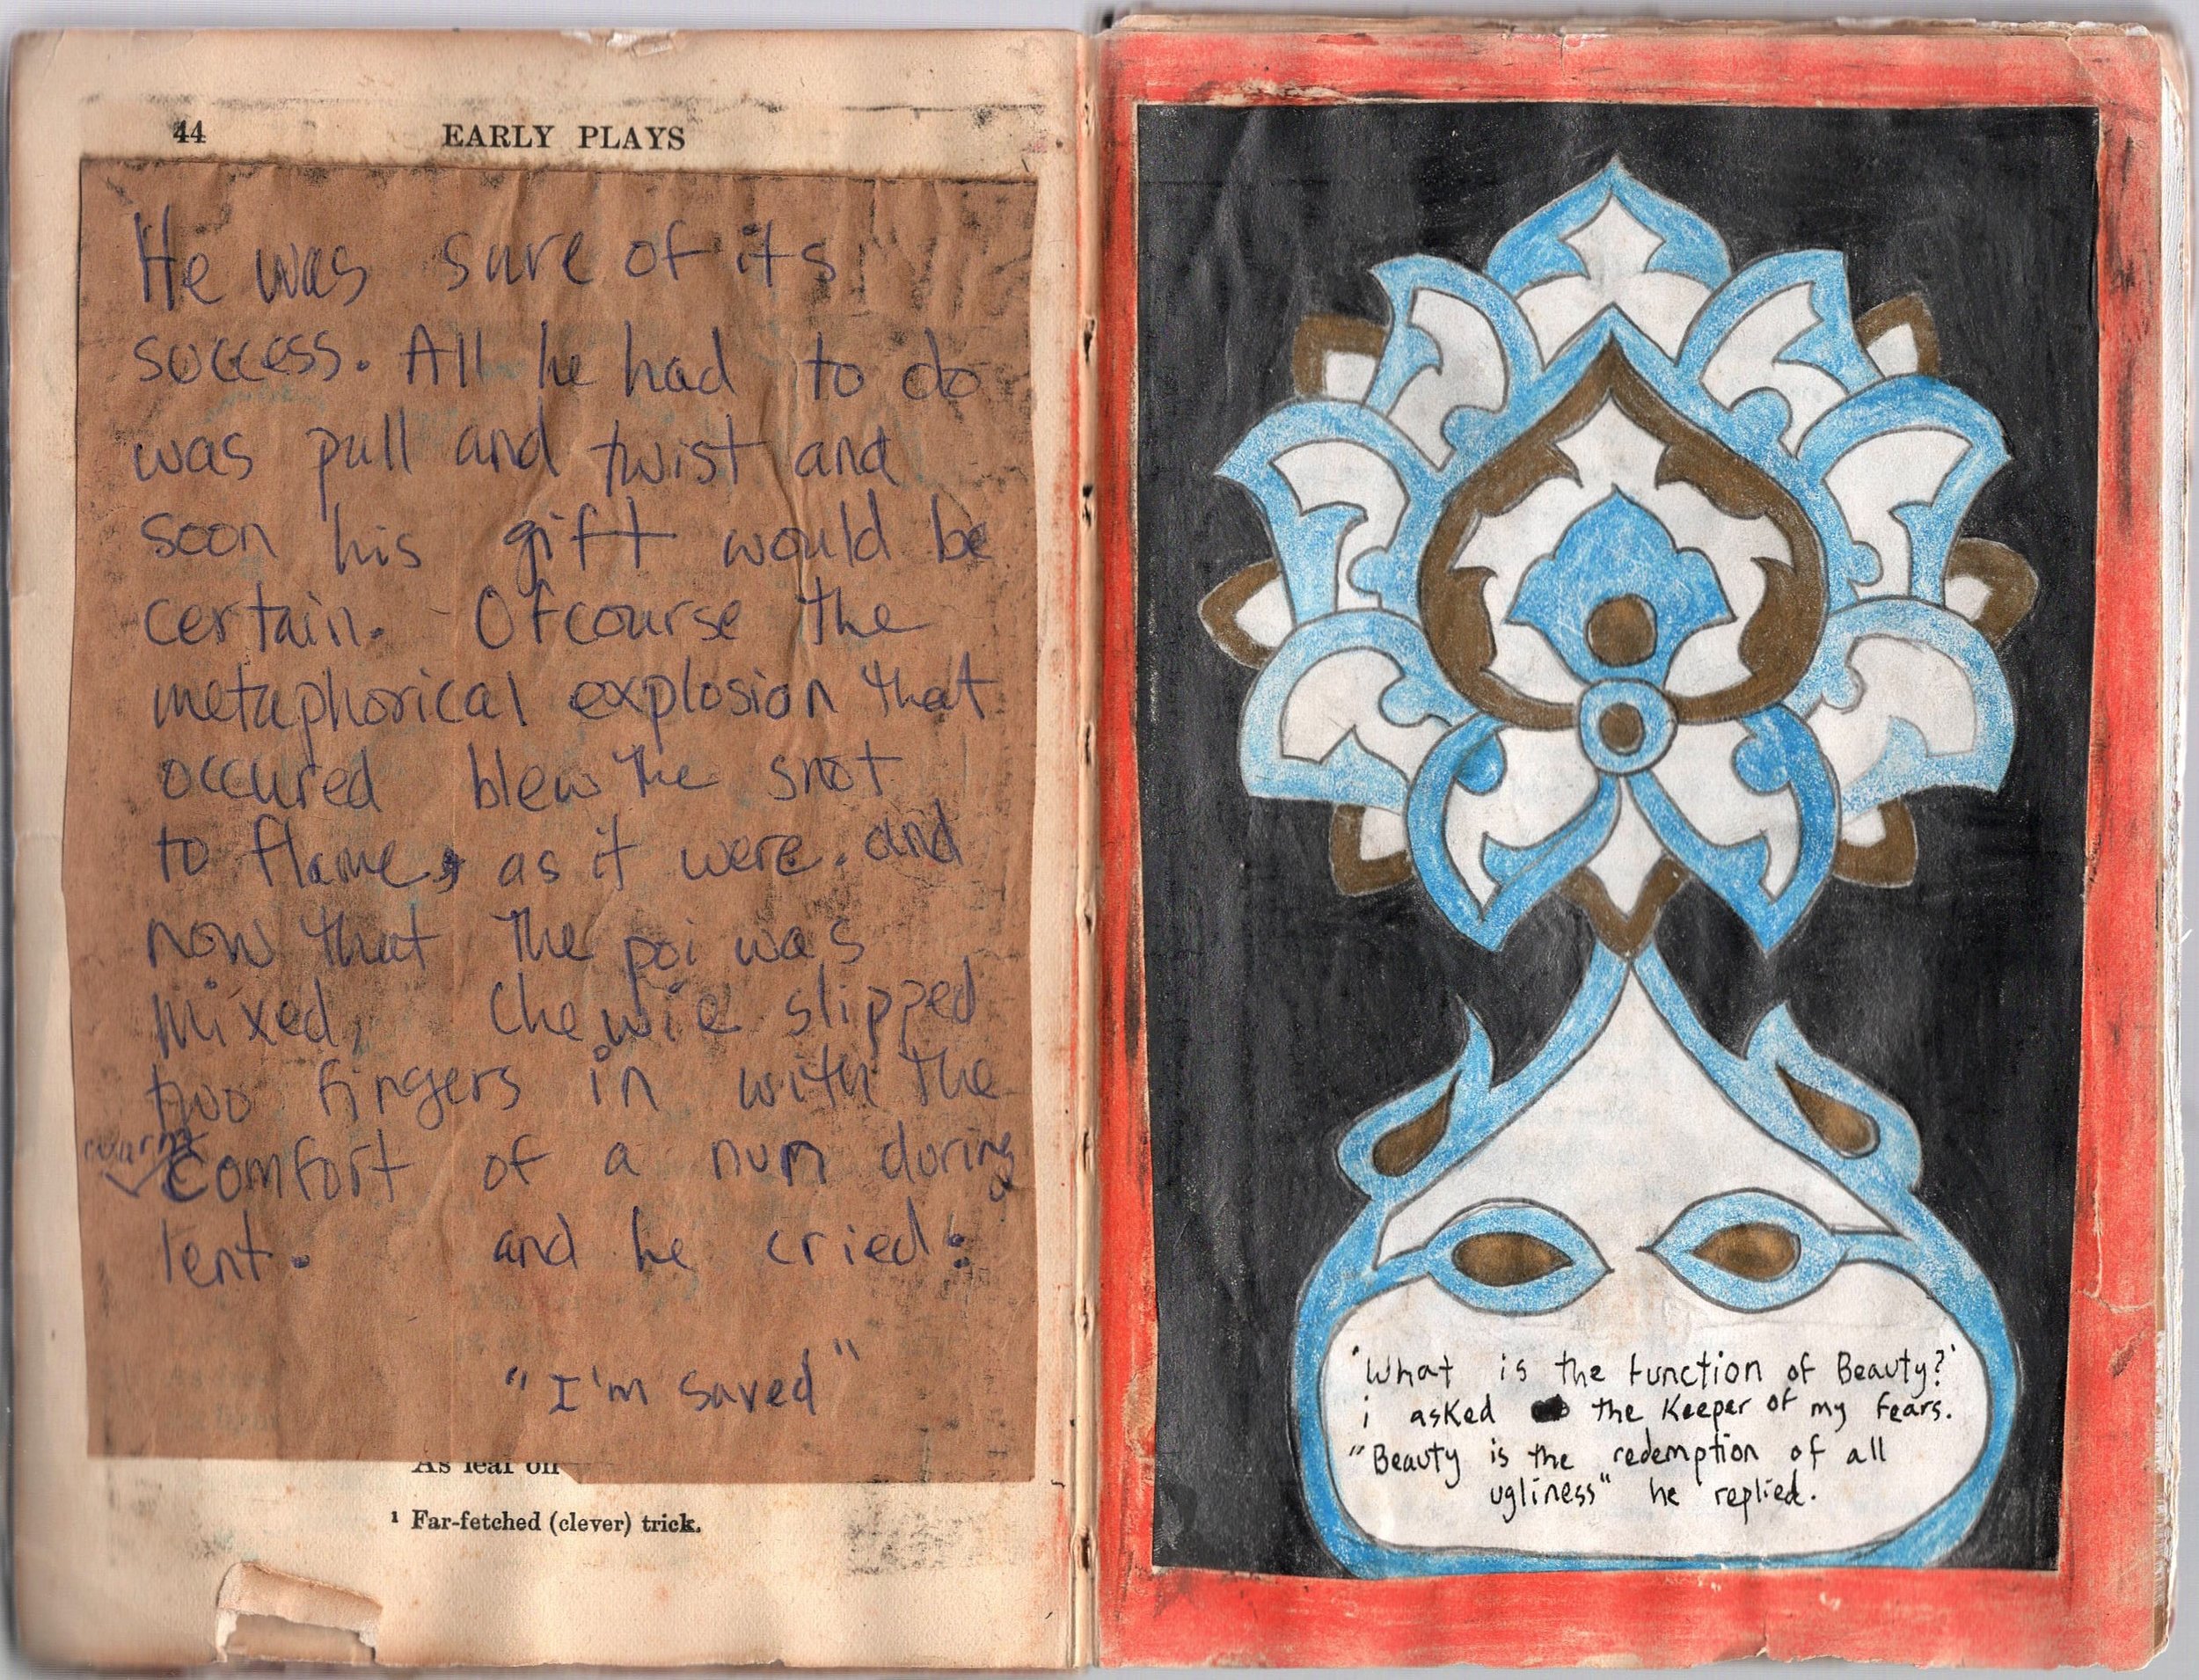 44 EARLY PLAYS
He was sure of its
success. All he had to do
was pull and twist and
soon his gift would be
certain. - Ofcourse the
metaphorical explosion that
occured blew the snot
to flame, as it were. and
now that the poi was
mixed, Chewie slipped
two fingers in with the
warm
comfort of a num during
lent. and he cried:
"I'm saved"
As leaf on
¹ Far-fetched (clever) trick.
'What is the function of Beauty?'
i asked the Keeper of my fears.
"Beauty is the redemption of all
ugliness" he replied.